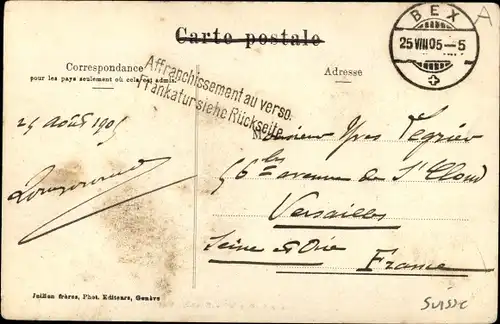 Carte postale
BEX
25 VIII 05 — 5
A
Correspondance
pour les pays seulement où cela est admis.
Adresse
Affranchissement au verso.
Frankatur siehe Rückseite.
25 Août 1905
Monsieur Yves
56 bis avenue de St Cloud
Versailles
Seine et Oise
France
Jullien frères, Phot. Editeurs, Genève
Suisse